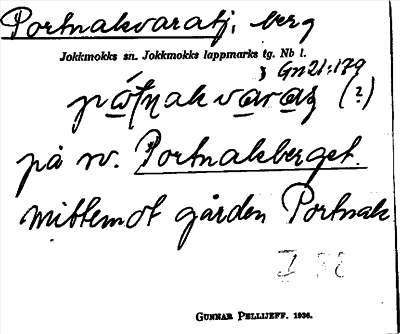 Portnakvaratj, berg
Jokkmokks sn. Jokkmokks lappmarks tg. Nb l.
Gn21:179
(?)
på sv. Portnakberget.
mittemot gården Portnak
I 38
GUNNAR PELLIJEFF. 1936.